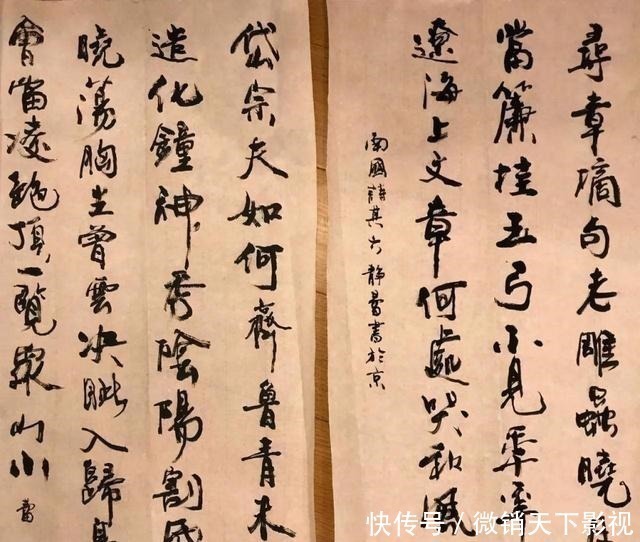 尋章摘句老雕蟲曉
當簾挂玉弓不見年年
遼海上文章何處哭秋風
南國詩其六靜蕾書於京
岱宗夫如何齊魯青未
造化鐘神秀陰陽割昏
曉蕩胸生曾雲決眥入歸鳥
會當凌絕頂一覽眾山小
快传号/微销天下影视